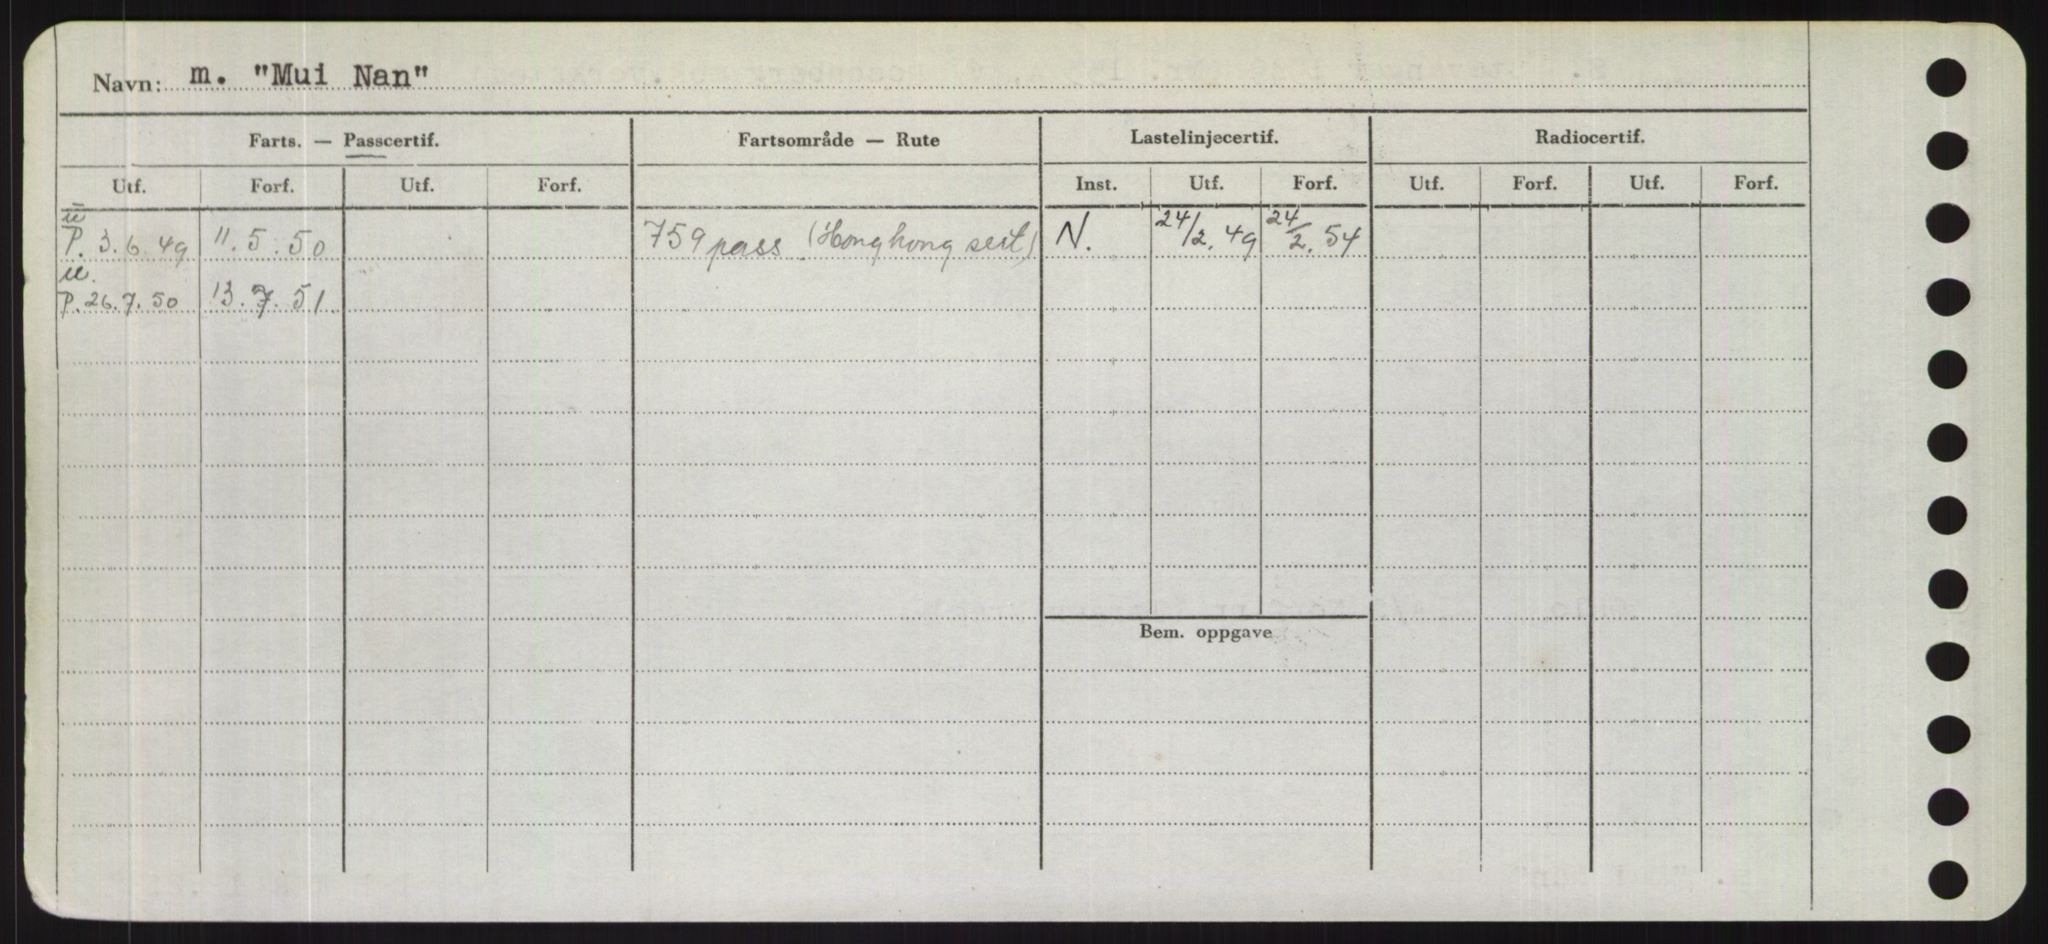 Navn: m. "Mui Nan"
Farts. — Passcertif. Fartsområde — Rute Lastelinjecertif. Radiocertif.
Utf. Forf. Utf. Forf. Inst. Utf. Forf. Utf. Forf. Utf. Forf.
u
P. 3.6.49 11.5.50 759 pass (Hongkong sert) N. 24/2.49 24/2.54
u.
P. 26.7.50 13.7.51
Bem. oppgave